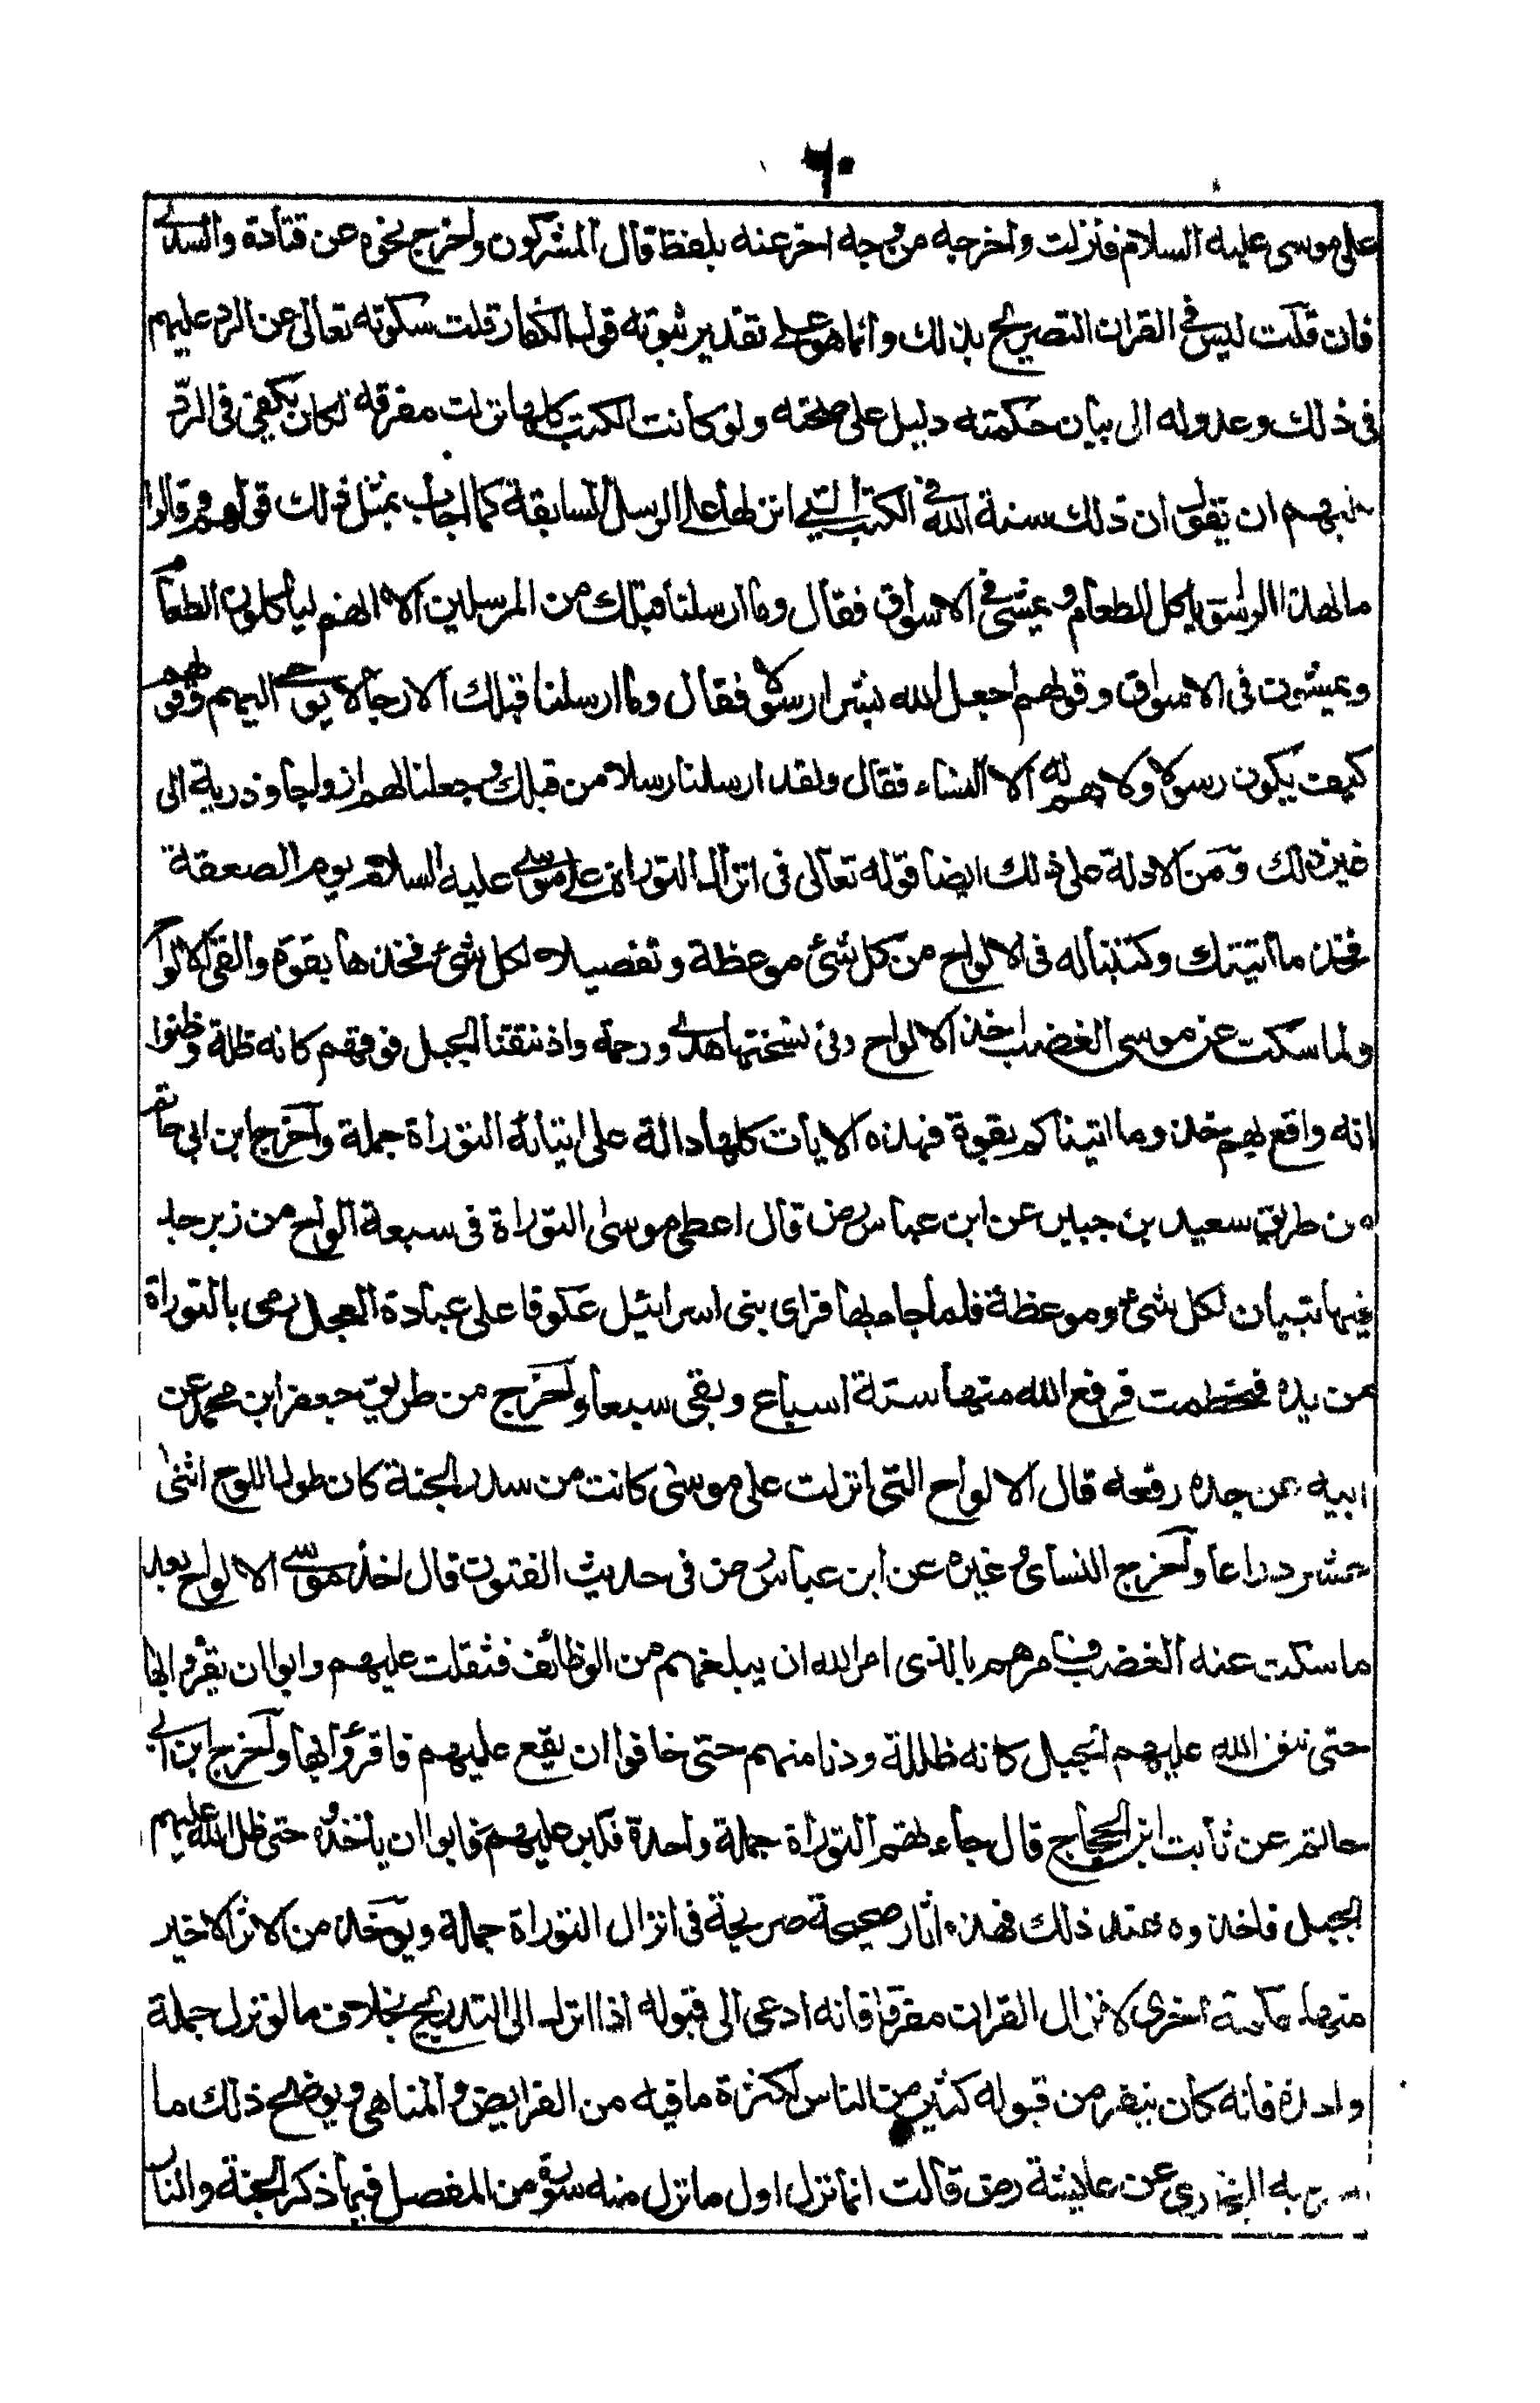 ٦٠
على موسى عليه السلام فنزلت واخرجه من وجه اخر عنه بلفظ قال المشركون واخرج نحوه عن قتادة والسدى
فان قلت ليس فى القران التصريح بذلك وانما هو على تقدير ثبوته قول الكفار قلت سكوته تعالى عن الرد عليهم
فى ذلك وعدوله الى بيان حكمته دليل على صحته ولو كانت الكتب كلها نزلت مفرقه لكان يكفى فى الرد
عليهم ان يقول ان ذلك سنة الله فى الكتب التى انزلها على الرسل السابقة كما اجاب بمثل ذلك قولهم وقالوا
مال هذا الرسول ياكل الطعام ويمشى فى الاسواق فقال وما ارسلنا قبلك من المرسلين الا انهم لياكلون الطعام
ويمشون فى الاسواق وقولهم ابعث الله بشرا رسولا فقال وما ارسلنا قبلك الا رجالا يوحى اليهم وقولهم
كيف يكون رسولا ولا هم له الا النساء فقال ولقد ارسلنا رسلا من قبلك وجعلنا لهم ازواجا وذرية الى
غير ذلك ومن الادلة على ذلك ايضا قوله تعالى فى انزال التوراة على موسى عليه السلام يوم الصعقة
فخذ ما اتيتك وكتبنا له فى الالواح من كل شئ موعظة وتفصيلا لكل شئ فخذها بقوة والقى الالواح
ولما سكت عن موسى الغضب اخذ الالواح وفى نسختها هدى ورحمة واذ نتقنا الجبل فوقهم كانه ظلة وظنوا
انه واقع بهم خذوا ما اتيناكم بقوة فهذه الايات كلها دالة على ايتائه التوراة جملة واخرج ابن ابى حاتم
من طريق سعيد بن جبير عن ابن عباس رض قال اعطى موسى التوراة فى سبعة الواح من زبرجد
فيها تبيان لكل شئ وموعظة فلما جاء بها فراى بنى اسرائيل عكوفا على عبادة العجل رمى بالتوراة
من يده فتحطمت فرفع الله منها ستة اسباع وبقى سبعا واخرج من طريق جعفر ابن محمد عن
ابيه عن جده رفعه قال الالواح التى انزلت على موسى كانت من سدر الجنة كان طول اللوح اثنى
عشر ذراعا واخرج النسائى وغيره عن ابن عباس رض فى حديث الفتون قال اخذ موسى الالواح بعد
ما سكت عنه الغضب فامرهم بالذى امر الله ان يبلغهم من الوظائف فثقلت عليهم وابوا ان يقروا بها
حتى نتق الله عليهم الجبل كانه ظللة ودنا منهم حتى خافوا ان يقع عليهم فاقرؤا بها واخرج ابن ابى
حاتم عن ثابت ابن الحجاج قال جاءتهم التوراة جملة واحدة فكبر عليهم فابوا ان ياخذوه حتى ظل الله عليهم
الجبل فاخذوه عند ذلك فهذه اثار صحيحة صريحة فى انزال التوراة جملة ويوخذ من الاثر الاخير
منها حكمة اخرى لانزال القران مفرقا فانه ادعى الى قبوله اذا انزل الى التدريج بخلاف ما لو نزل جملة
واحدة فانه كان ينفر من قبوله كثير من الناس لكثرة ما فيه من الفرايض والمناهى ويوضح ذلك ما
به البخارى عن عايشة رض قالت انما نزل اول ما نزل منه سورة من المفصل فيها ذكر الجنة والنار